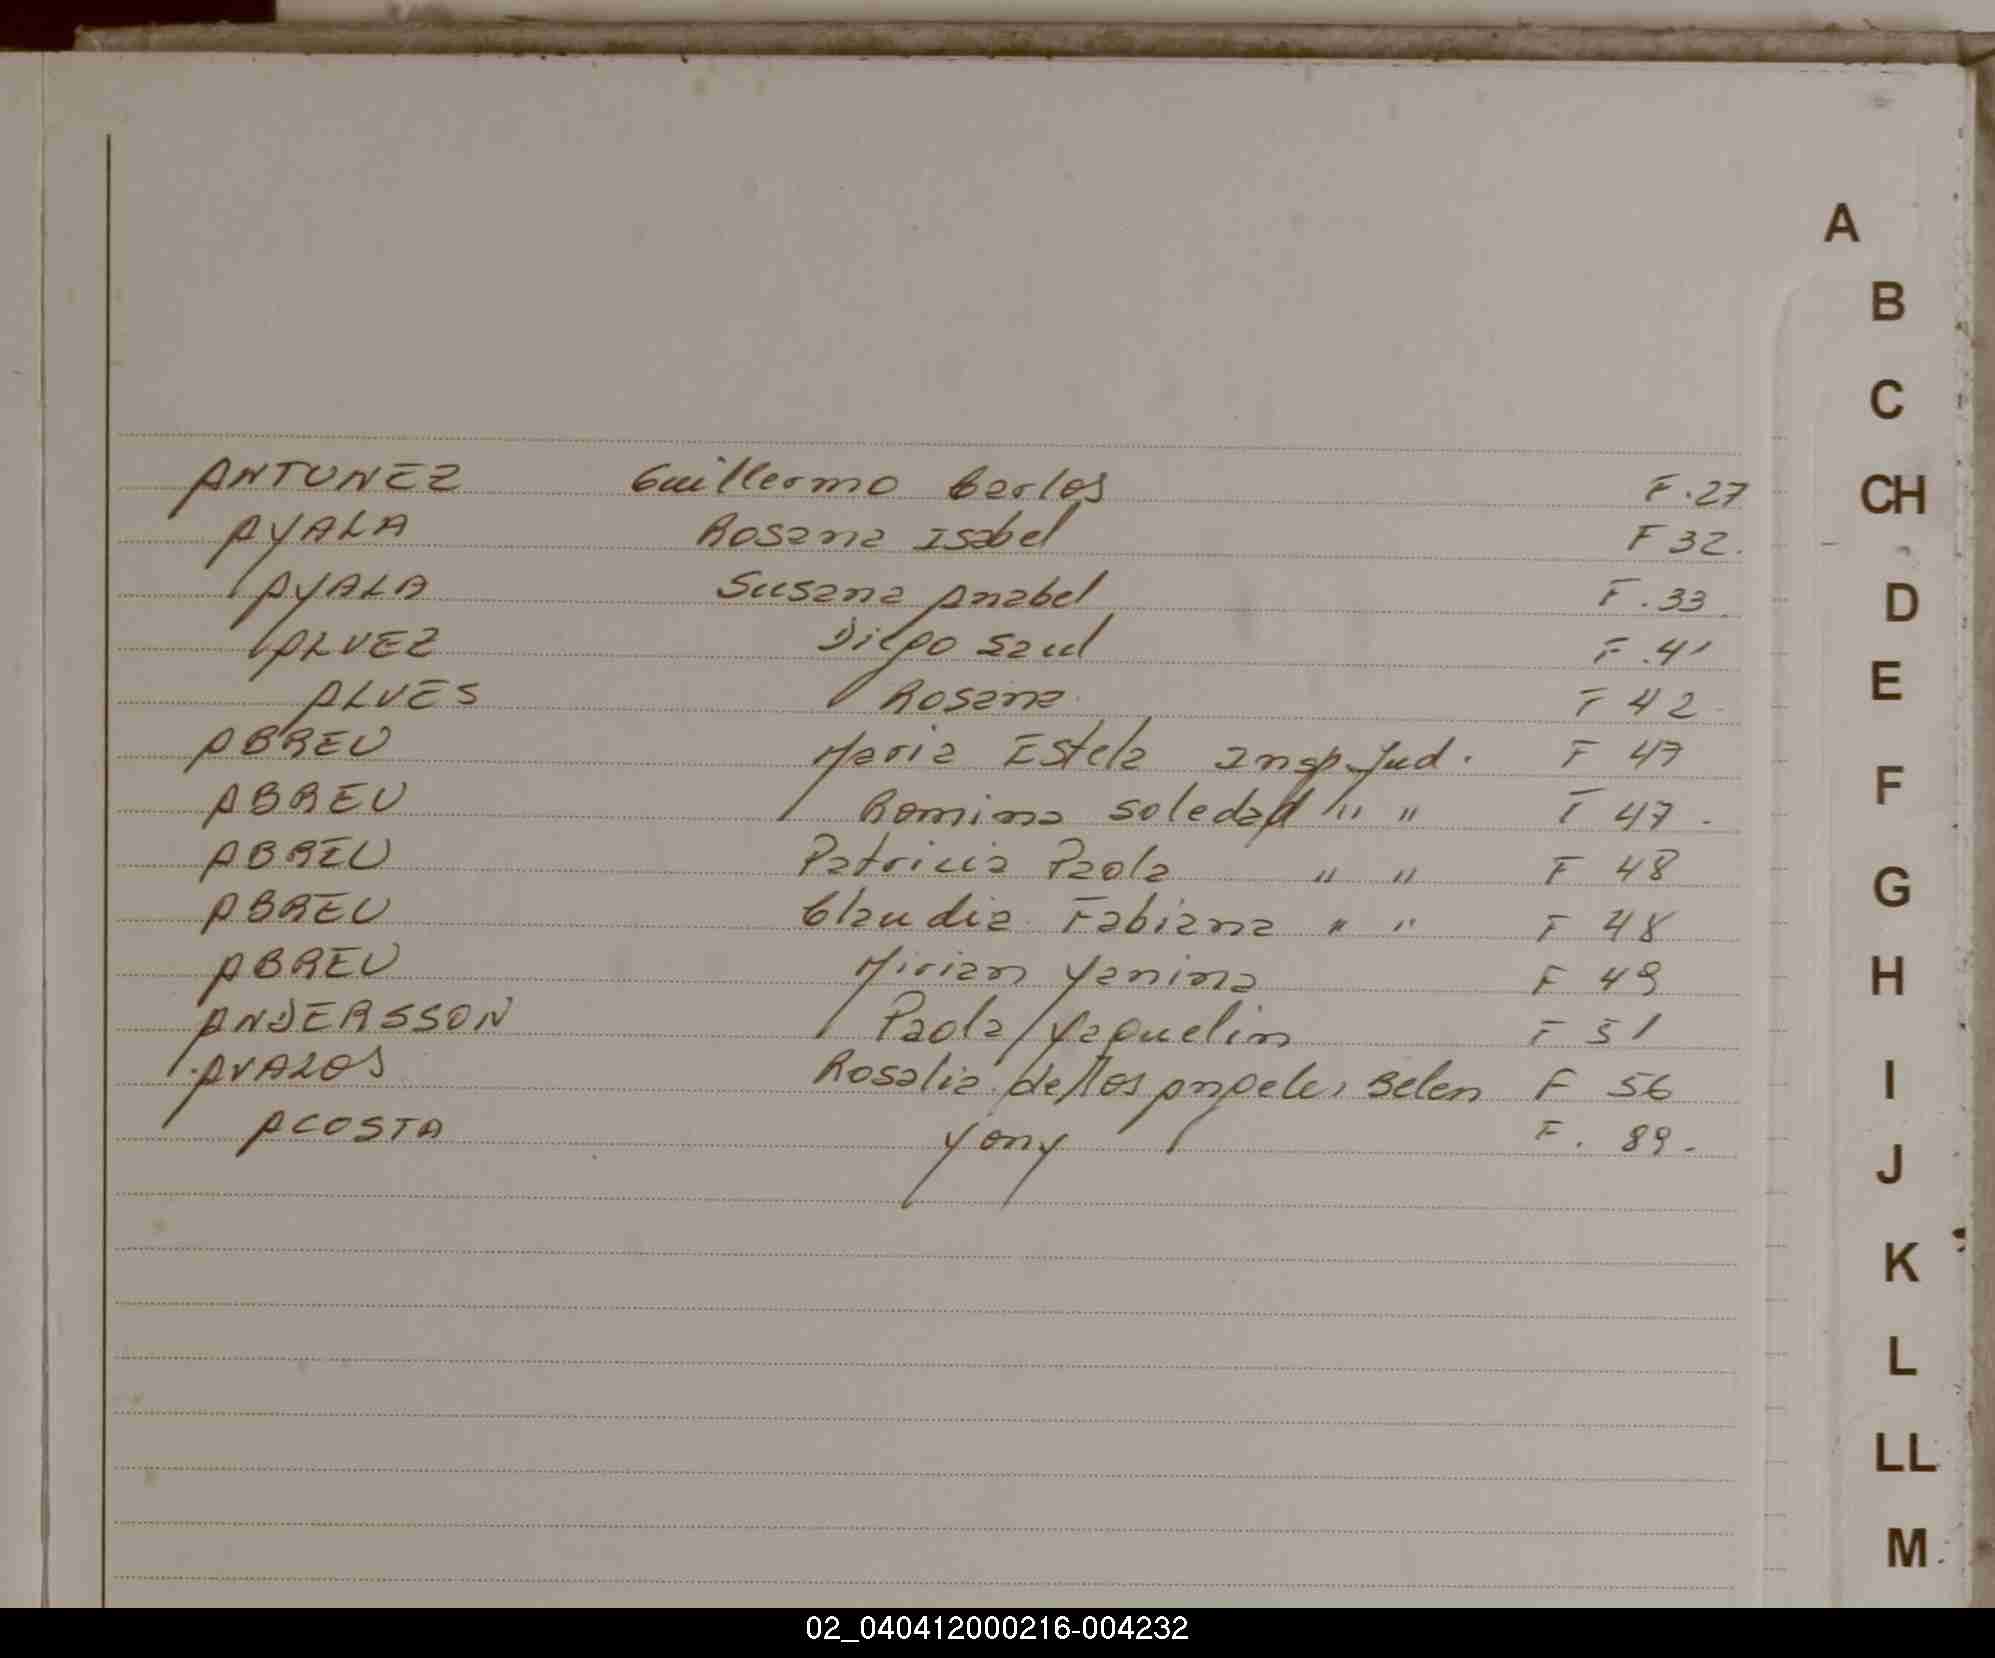 ANTUNEZ Guillermo Carlos F.27
AYALA Rosana Isabel F 32.
AYALA Susana Anabel F.33
ALVEZ Diego Saul F.41
ALVES Rosana F 42
ABREU Maria Estela Insp. Jud. F 47
ABREU Romina Soledad " " F 47.
ABREU Patricia Paola " " F 48
ABREU Claudia Fabiana " " F 48
ABREU Mirian Yanina F 49
ANDERSSON Paola Yaquelin F 51
AVALOS Rosalia de los Angeles Belen F 56
ACOSTA Yony F. 89.
A
B
C
CH
D
E
F
G
H
I
J
K
L
LL
M
02_040412000216-004232